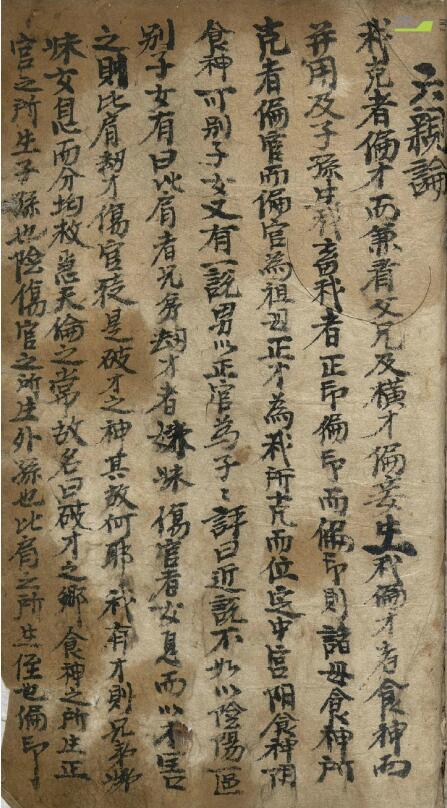 六親論
我克者偏才而兼看父兄及橫才偏妾生我偏才者食神而
并用及子孫生我畜我者正印偏印而偏印則諸母食神所
克者偏官而偏官為祖母正才為我所克而位定中宮陽食神陰
食神可別子女又有一說男以正官為子〻評曰近說不如以陰陽區
別子女有曰比肩者兄弟劫才者姊妹傷官者女息而以才言
之則比肩劫才傷官徒是破才之神其故何耶我有才則兄弟姊
妹女息而分均救急天倫之常故名曰破才之鄉食神之所生正
官之所生子孫也陰傷官之所生外孫也比肩之所生侄也偏印